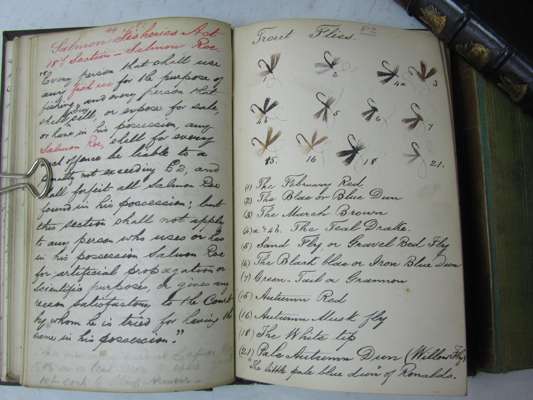 Salmon Fisheries Act
18th Section - Salmon Roe
"Every person that shall use
any fish roe for the purpose of
fishing, and every person that
shall buy, sell, or expose for sale,
or have in his possession, any
Salmon Roe, shall for every
such offence be liable to a
penalty not exceeding £2, and
shall forfeit all Salmon Roe
found in his possession; but
this section shall not apply
to any person who uses or has
in his possession Salmon Roe
for artificial propagation or
Scientific purposes, or gives any
reason satisfactory to the Court
by whom he is tried for having the
same in his possession."
Trout Flies.
1
2
4
3
5
6
7
15.
16
18
21.
(1) The February Red
(2) The Blae or Blue Dun
(3) The March Brown
(4) a & b. The Teal Drake.
(5) Sand Fly or Gravel Bed Fly
(6) The Black blae or Iron Blue Dun
(7) Green-Tail or Grannom
(15) Autumn Red
(16) Autumn Musk fly
(18) The White tip
(21) Pale Autumn Dun (Willow Fly)
"The little pale blue dun" of Ronalds.